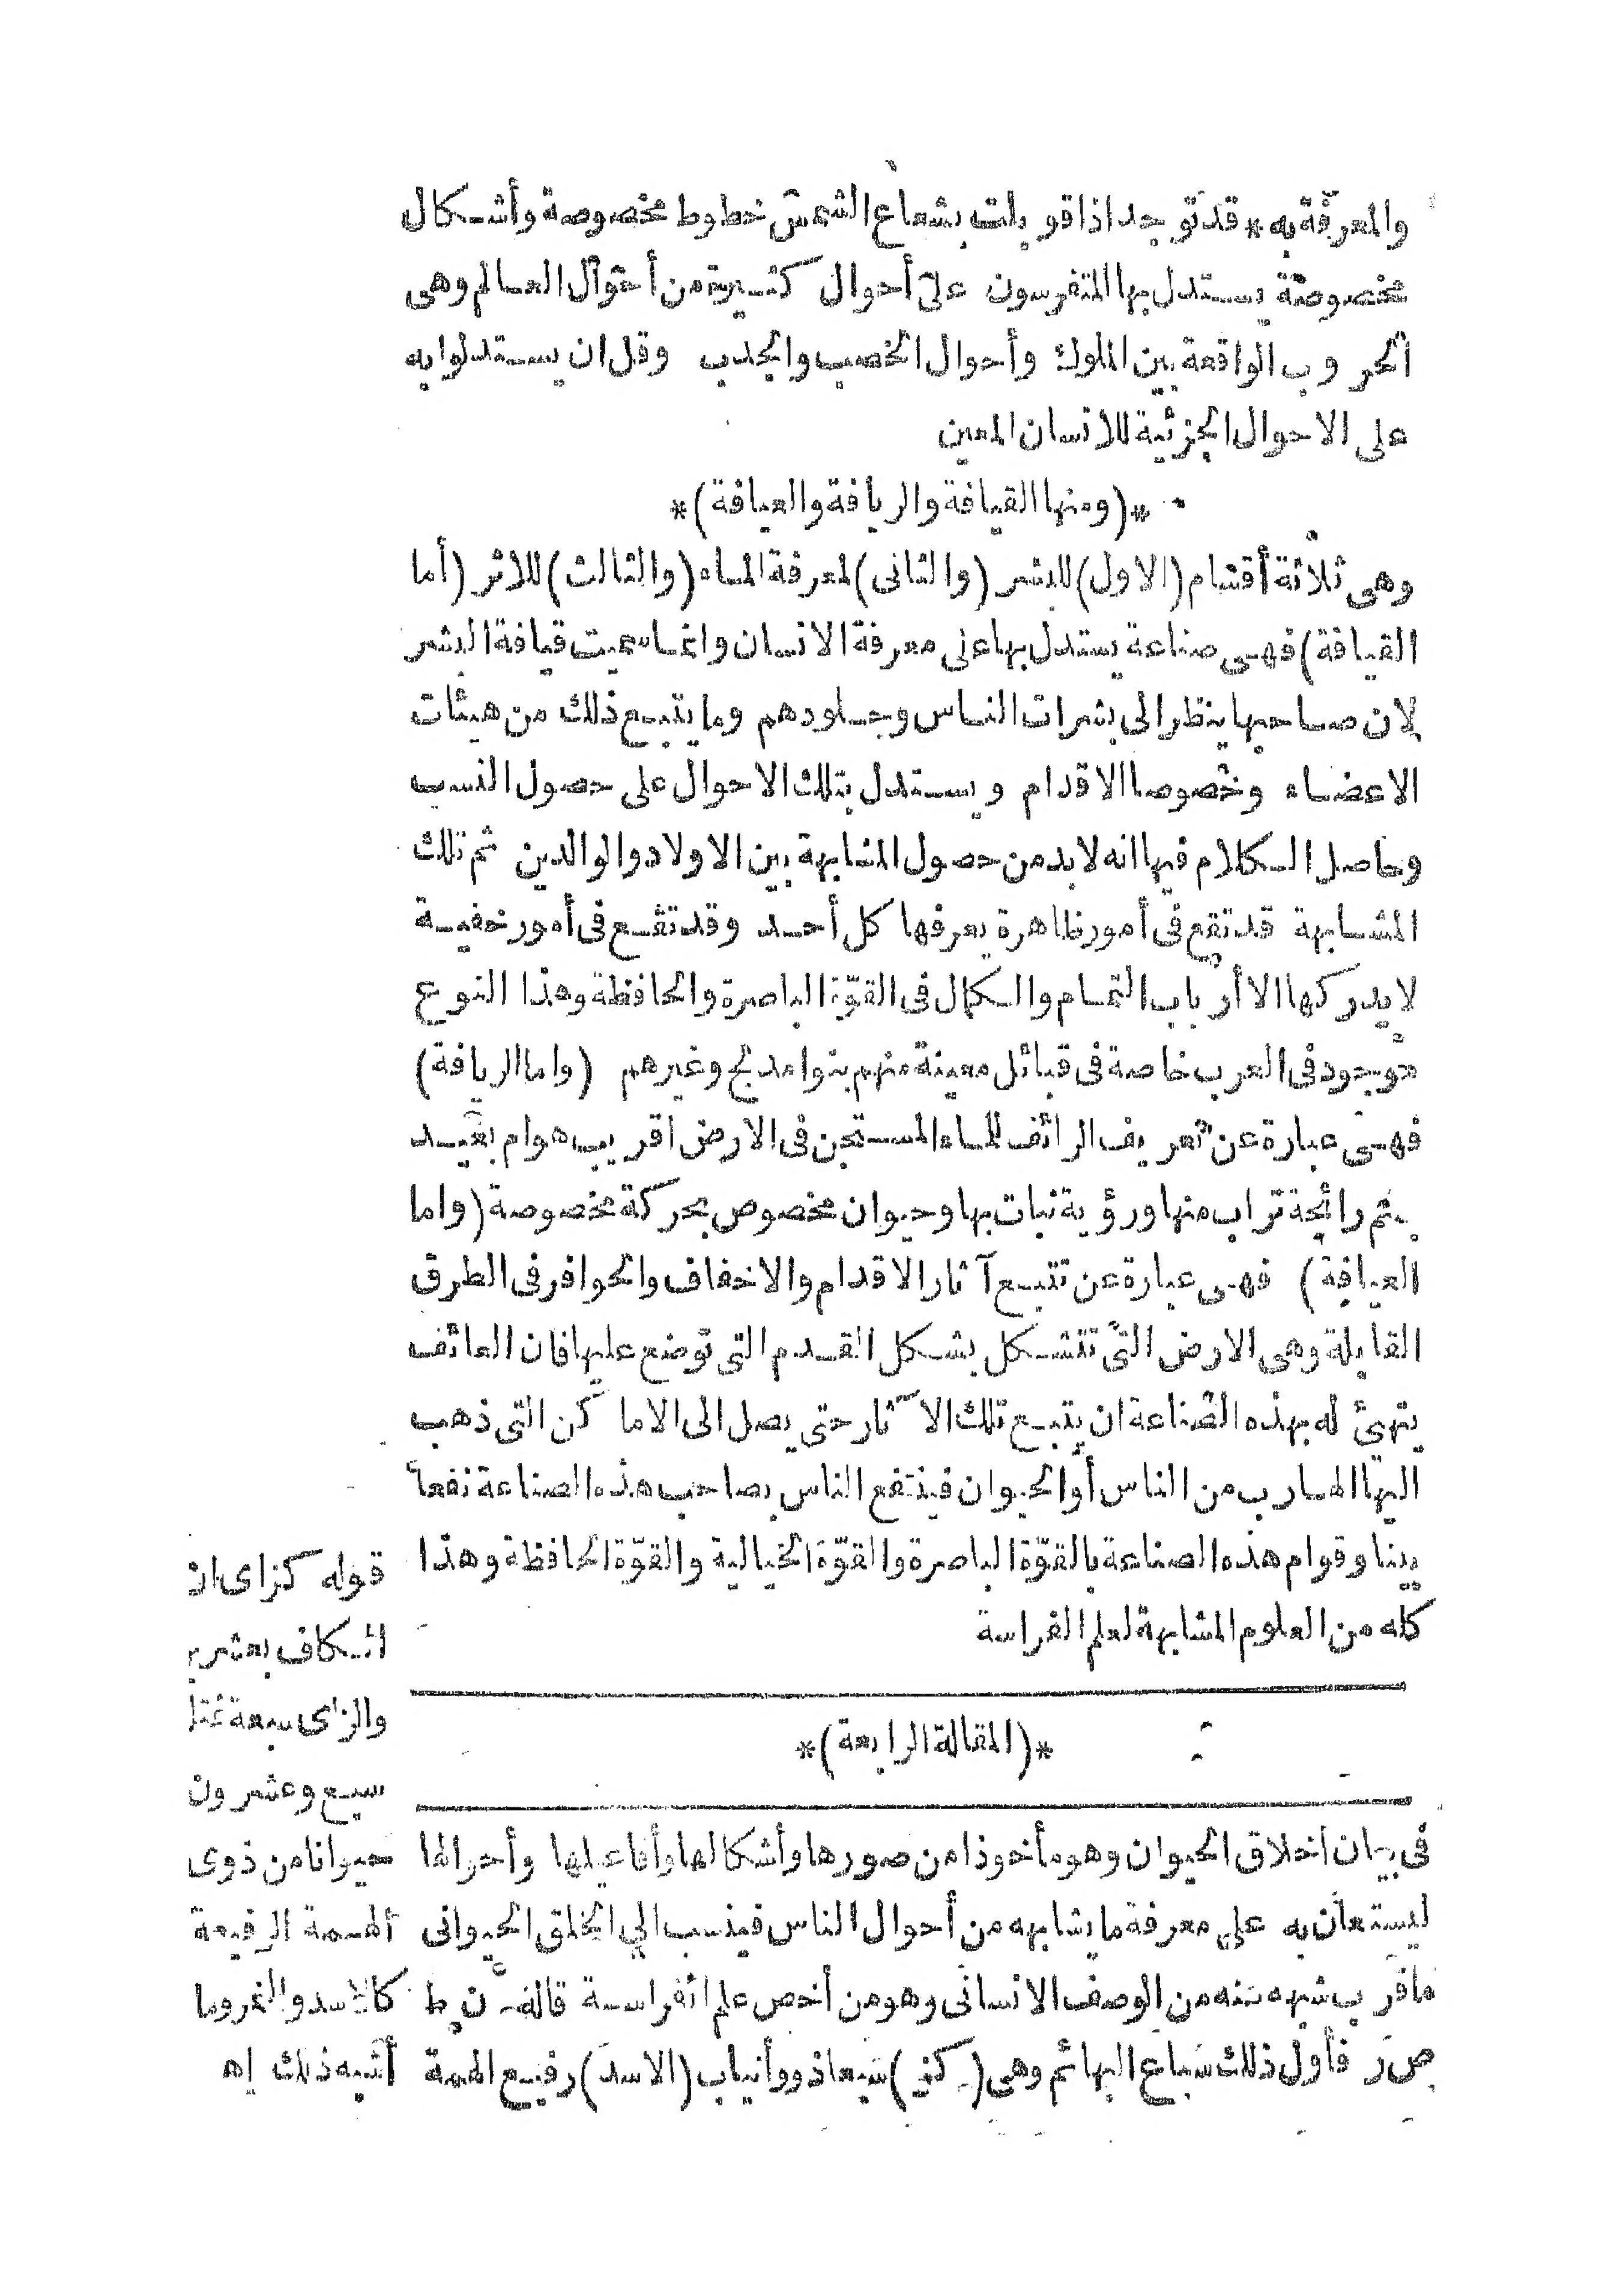 والمعرفة به * قد توجد اذا قوبلت بشعاع الشمس خطوط مخصوصة وأشكال
مخصوصة يستدل بها المتفرسون على أحوال كثيرة من أحوال العالم وهى
الحروب الواقعة بين الملوك وأحوال الخصب والجدب وقل ان يستدلوا به
على الاحوال الجزئية للانسان المعين
*(ومنها القيافة والريافة والعيافة)*
وهى ثلاثة أقسام (الاول) للبشر (والثانى) لمعرفة الماء (والثالث) للاثر (أما
القيافة) فهى صناعة يستدل بها على معرفة الانسان وانما سميت قيافة البشر
لان صاحبها ينظر الى بشرات الناس وجلودهم وما يتبع ذلك من هيئات
الاعضاء وخصوصا الاقدام ويستدل بتلك الاحوال على حصول النسب
وحاصل الكلام فيها انه لا بد من حصول المشابهة بين الاولاد والوالدين ثم تلك
المشابهة قد تقع فى أمور ظاهرة يعرفها كل أحد وقد تقع فى أمور خفية
لا يدركها الا أرباب التمام والكمال فى القوّة الباصرة والحافظة وهذا النوع
موجود فى العرب خاصة فى قبائل معينة منهم بنوا مدلج وغيرهم (واما الريافة)
فهى عبارة عن تعريف الرائف للماء المستجن فى الارض اقريب هو ام بعيد
بشم رائحة تراب منها ورؤية نبات بها وحيوان مخصوص بحركة مخصوصة (واما
العيافة) فهى عبارة عن تتبع آثار الاقدام والاخفاف والحوافر فى الطرق
القابلة وهى الارض التى تتشكل بشكل القدم التى توضع عليها فان العائف
يتهيئ له بهذه الصناعة ان يتبع تلك الآثار حتى يصل الى الاماكن التى ذهب
اليها الهارب من الناس أو الحيوان فينتفع الناس بصاحب هذه الصناعة نفعا
بينا وقوام هذه الصناعة بالقوّة الباصرة والقوّة الخيالية والقوّة الحافظة وهذا
كله من العلوم المشابهة لعلم الفراسة
*(المقالة الرابعة)*
فى بيان أخلاق الحيوان وهو مأخوذ من صورها وأشكالها وأفاعيلها وأحوالها
ليستعان به على معرفة ما يشابهه من أحوال الناس فينسب الى الخلق الحيوانى
ما قرب شبهه منه من الوصف الانسانى وهو من أخص علم الفراسة قاله ن ط
ص ر فأول ذلك سباع البهائم وهى (كز) سبعا ذوو أنياب (الاسد) رفيع الهمة
قوله كز اى ان
الكاف بعشرين
والزاى سبعة
سبع وعشرون
حيوانا من ذوى
الهمة الرفيعة
كالاسد والنمر وما
أشبه ذلك اه